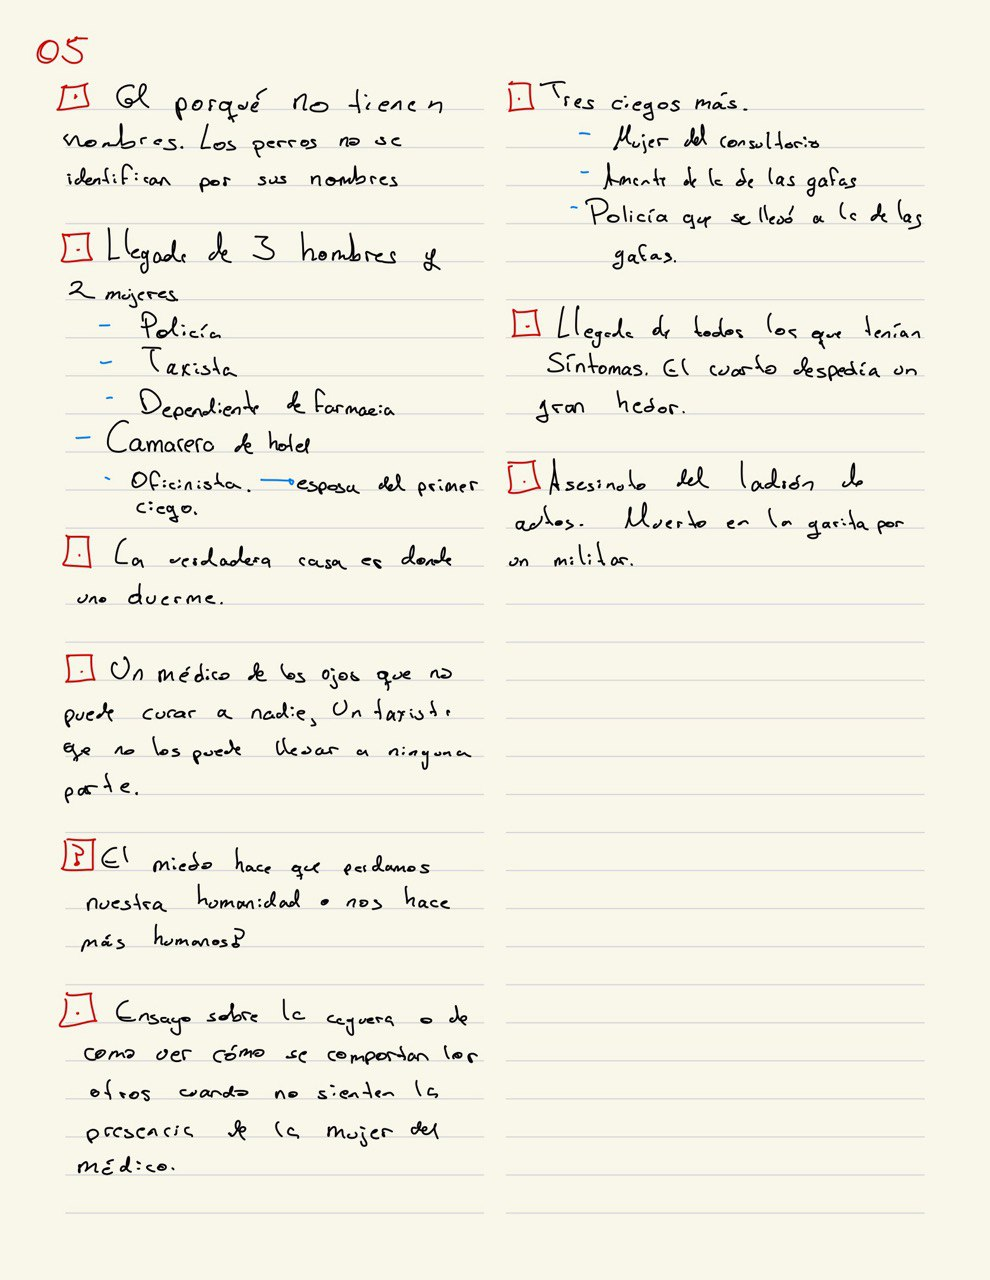 05
El porqué no tienen
nombres. Los perros no se
identifican por sus nombres
Llegada de 3 hombres y
2 mujeres
- Policía
- Taxista
- Dependiente de farmacia
- Camarero de hotel
- Oficinista. → esposa del primer
ciego.
La verdadera casa es donde
uno duerme.
Un médico de los ojos que no
puede curar a nadie, Un taxista
que no los puede llevar a ninguna
parte.
? El miedo hace que perdamos
nuestra humanidad o nos hace
más humanos?
Ensayo sobre la ceguera o de
como ver cómo se comportan los
otros cuando no sienten la
presencia de la mujer del
médico.
Tres ciegos más.
- Mujer del consultorio
- Amante de la de las gafas
- Policía que se llevó a la de las
gafas.
Llegada de todos los que tenían
Síntomas. El cuarto despedía un
gran hedor.
Asesinato del ladrón de
autos. Muerto en la garita por
un militar.